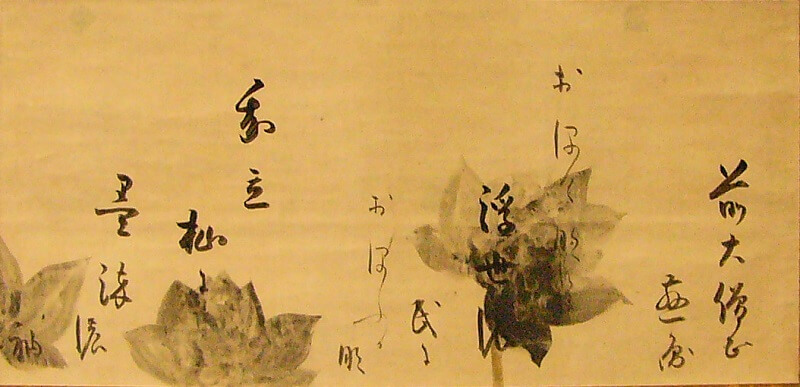 前大僧正
慈円
おほけなく
浮世の
民に
おほふか
那
我立
杣に
墨
染濃
袖